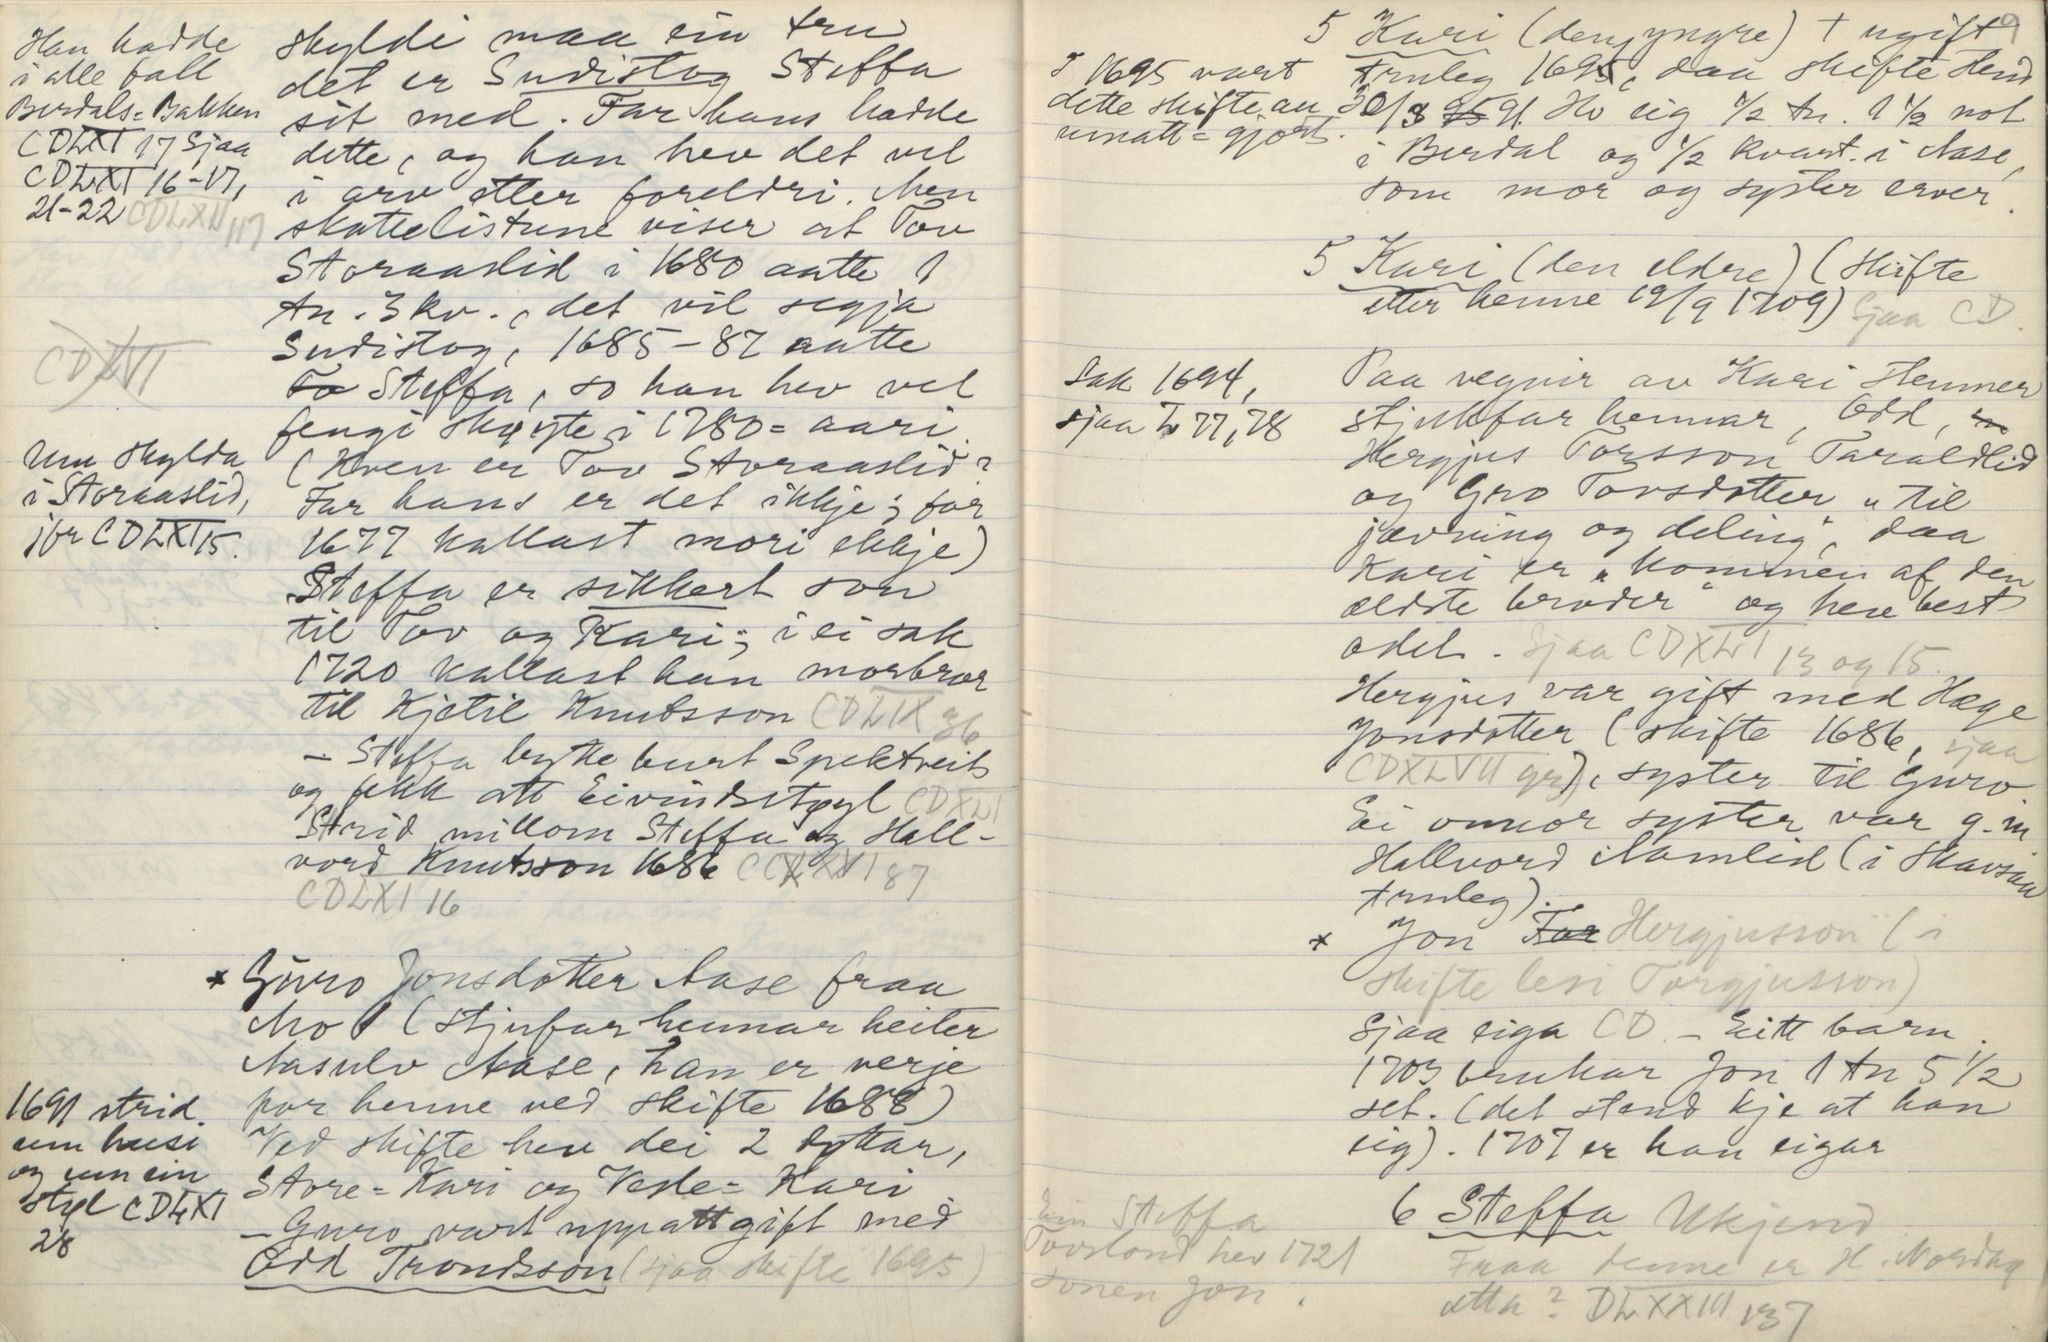 Han hadde
i alle fall
Berdals=Bakken
CDLXI 17 Sjaa
CDLXI 16-17,
21-22 CDLXII 117
CDLVI
Um skylda
i Storaaslid,
jfr CDLXI 15.
1691 strid
um husi
og um ein
styl CDLXI
28
skyldi maa ein tru
det er Sudistog Steffa
sit med. Far hans hadde
dette, og han hev det vel
i arv etter foreldri. Men
skattelistune viser at Tov
Storaaslid i 1680 aatte 1
tn. 3 kv., det vil segja
Sudistog, 1685-87 aatte
To Steffa, so han hev vel
fengi skøyte i 1780=aari
(Kven er Tov Storaaslid?
Far hans er det ikkje; for
1677 kallast mori ekkje)
Steffa er sikkert son
til Tov og Kari; i ei sak
1720 kallast han morbror
til Kjetil Knutsson CDLIX 36
- Steffa bytte burt Spektveit
og fekk att Eivindstøyl CDXLI
Strid millom Steffa og Hall-
vord Knutsson 1686 CCXXXVI 87
CDLXI 16
* Guro Jonsdotter Aase fraa
Mo (stjufar hennar heiter
Aasulv Aase, han er verje
for henne ved skifte 1688)
Ved skifte hev dei 2 døttar,
Store=Kari og Vesle=Kari
- Guro vart uppatt gift med
Odd Trondsson (sjaa skifte 1695)
9
I 1695 vart
dette skifte av
umatt=gjort.
Sak 1694,
sjaa L 77, 78
Ein Steffa
Tovslond hev 1721
sonen Jon.
5 Kari (den yngre) + ugift
truleg 1695, daa skifte Hend
30/3 95 91 Ho eig 1/2 tn. 1 1/2 not
i Berdal og 1/2 kvart. i Aase,
som mor og syster erver.
5 Kari (den eldre) (skifte
etter henne 19/9 1709) Sjaa CD.
Paa vegnir av Kari stemner
stjukfar hennar, Odd,
Hergjus Torsson Taraldlid
og Gro Tovsdotter „til
jævning og deling", daa
Kari er „kommen af den
ældste broder" og hev best
odel. Sjaa CDXLVI 13 og 15.
Hergjus var gift med Hæge
Jonsdotter (skifte 1686, sjaa
CDXLVII 93), syster til Guro
Ei onnor syster var g. m
Hallvord Aamlid (i Skavsaa
truleg).
* Jon Tor Hergjusson (i
skifte lesi Torgjusson)
Sjaa eiga CD. - Eitt barn.
1703 brukar Jon 1 tn 5 1/2
set. (det stend kje at han
eig). 1707 er han eigar
6 Steffa Ukjend
Fraa denne er H. Nordag
ætta? DLXXIII 137